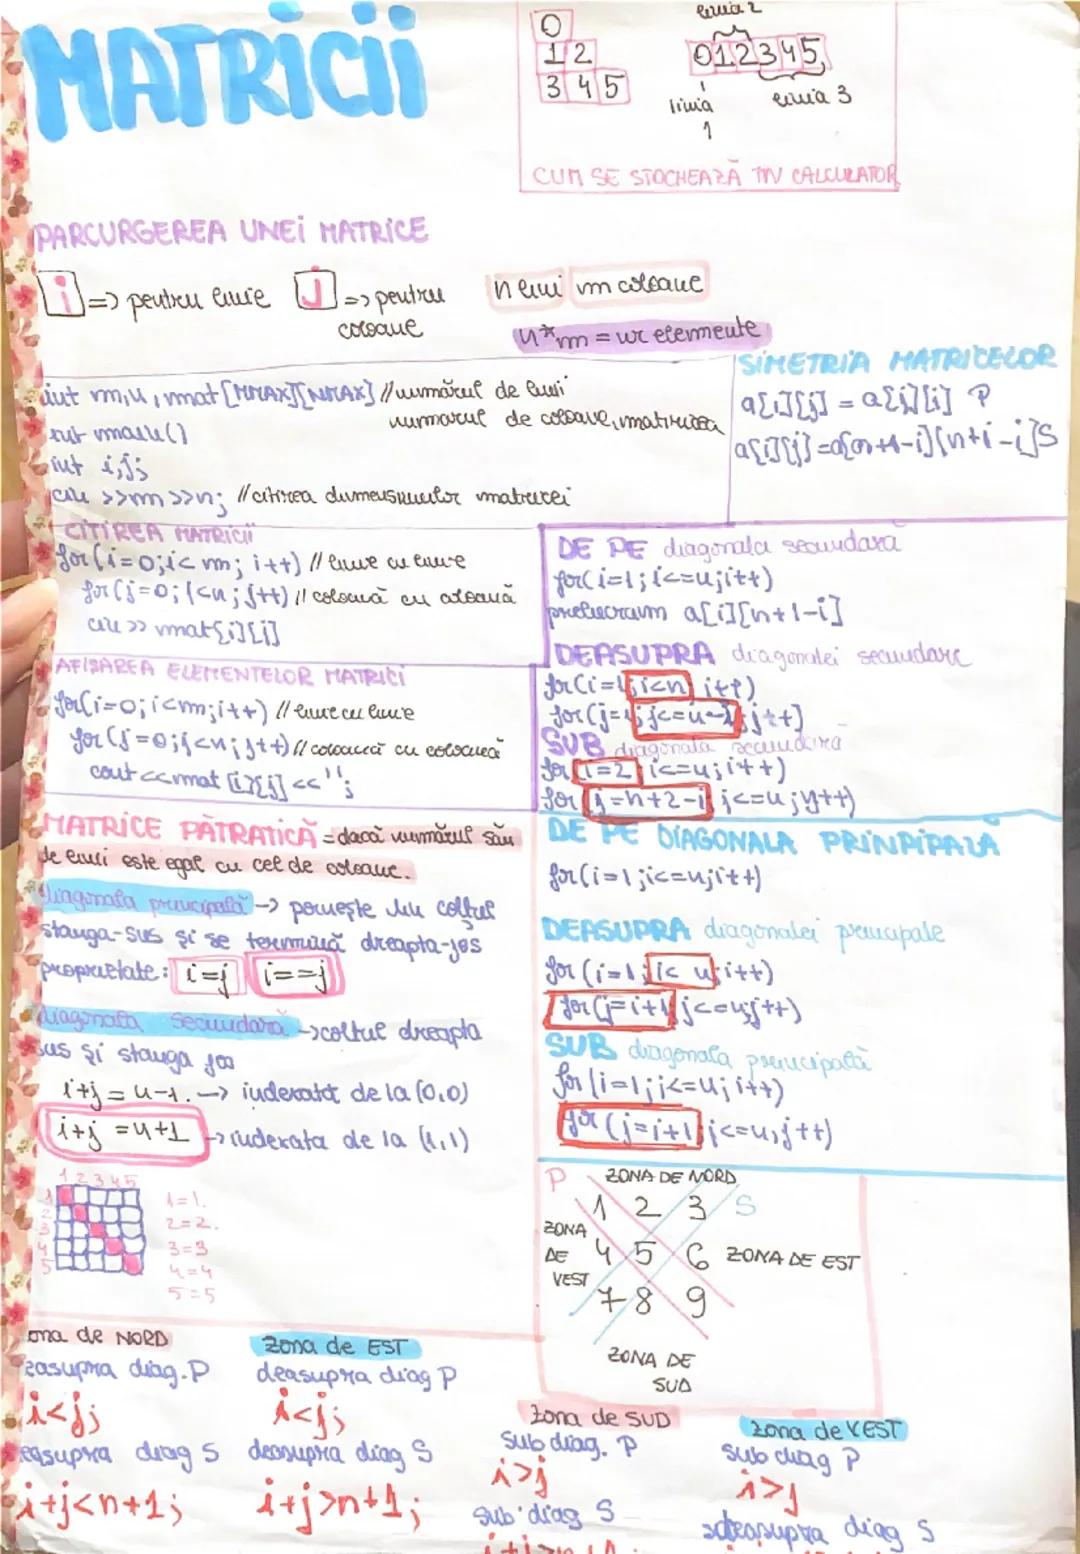 MATRICII
0
1 2
3 4 5
linia 2
0 1 2 3 4 5
linia
1
linia 3
CUM SE STOCHEAZĂ ÎN CALCULATOR
PARCURGEREA UNEI MATRICE
i => pentru linie
j => pentru
coloane
n linii m coloane
n*m = nr elemente
SIMETRIA MATRICELOR
a[i][j] = a[j][i] P
a[i][j]=a[n+1-i][n+1-i]S
int m,n, mat[MMAX][NMAX] //numărul de linii
numarul de coloane, matricea
int main()
int i,j;
cin >>m>>n; //citirea dimensiunilor matricei
CITIREA MATRICII
for(i=0;i<m; i++) // linie cu linie
for(j=0; j<n; j++) // coloană cu coloană
cin >> mat[i][j]
AFISAREA ELEMENTELOR MATRICI
for(i=0; i<m; i++) // linie cu linie
for(j=0; j<n; j++) // coloană cu coloană
cout <<mat [i][j] <<" ";
DE PE diagonala secundara
for(i=1; i<=n; i++)
prelucram a[i][n+1-i]
DEASUPRA diagonalei secundare
for(i=1; i<n; i++)
for(j=1; j<=n-i; j++)
SUB diagonala secundara
for(i=2; i<=n; i++)
for(j=n+2-i; j<=n; j++)
MATRICE PĂTRATICĂ = dacă numărul său
de linii este egal cu cel de coloane.
diagonala principală -> pornește din colțul
stanga-sus și se termină dreapta-jos
proprietate: i=j i==j
diagonala secundară -> colțul dreapta
sus și stanga jos
i+j = n-1. -> indexată de la (0,0)
i+j = n+1 -> indexata de la (1,1)
1 2 3 4 5
1
2
3
4
5
1=1.
2=2.
3=3
4=4
5=5
DE PE DIAGONALA PRINPIPALĂ
for(i=1; i<=n; i++)
DEASUPRA diagonalei principale
for (i=1; i< n; i++)
for(j=i+1; j<=n; j++)
SUB diagonala principală
for(i=1; i<=n; i++)
for(j=i+1; j<=n, j++)
P ZONA DE NORD
1 2 3 S
ZONA
DE
VEST
4 5 6 ZONA DE EST
7 8 9
ZONA DE
SUD
ona de NORD
easupra diag.P
i<j;
easupra diag S
i+j<n+1;
zona de EST
deasupra diag P
i<j;
deasupra diag S
i+j>n+1;
zona de SUD
sub diag. P
i>j
sub diag S
zona de VEST
sub diag P
i>j
deasupra diag S